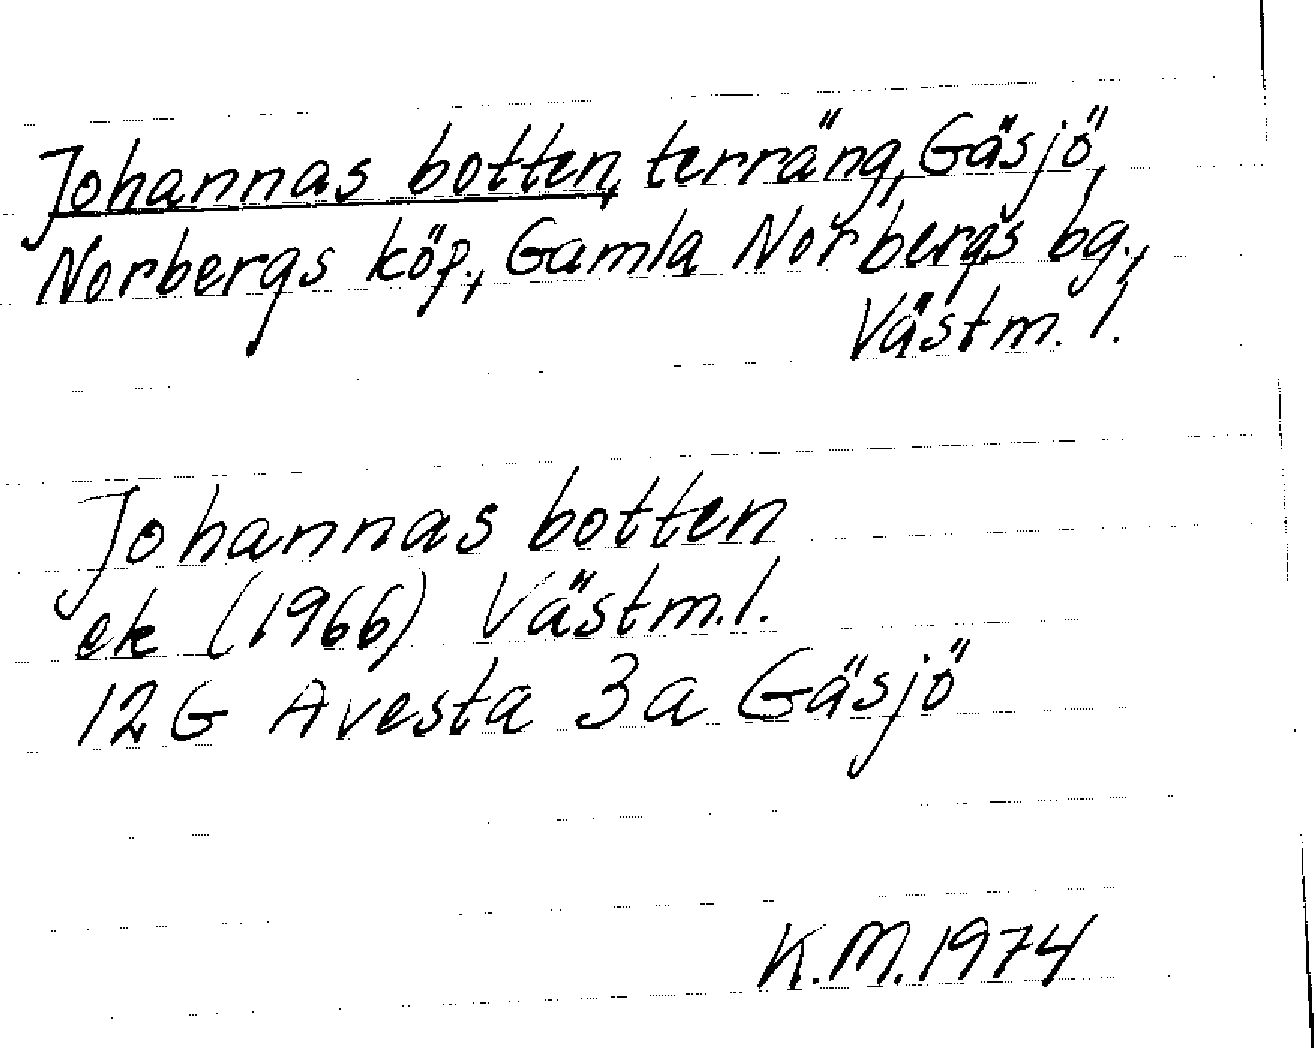 Johannas botten, terräng, Gäsjö,
Norbergs köp., Gamla Norbergs bg.,
Västm. l.
Johannas botten
ek (1966) Västm.l.
12G Avesta 3a Gäsjö
K.M.1974